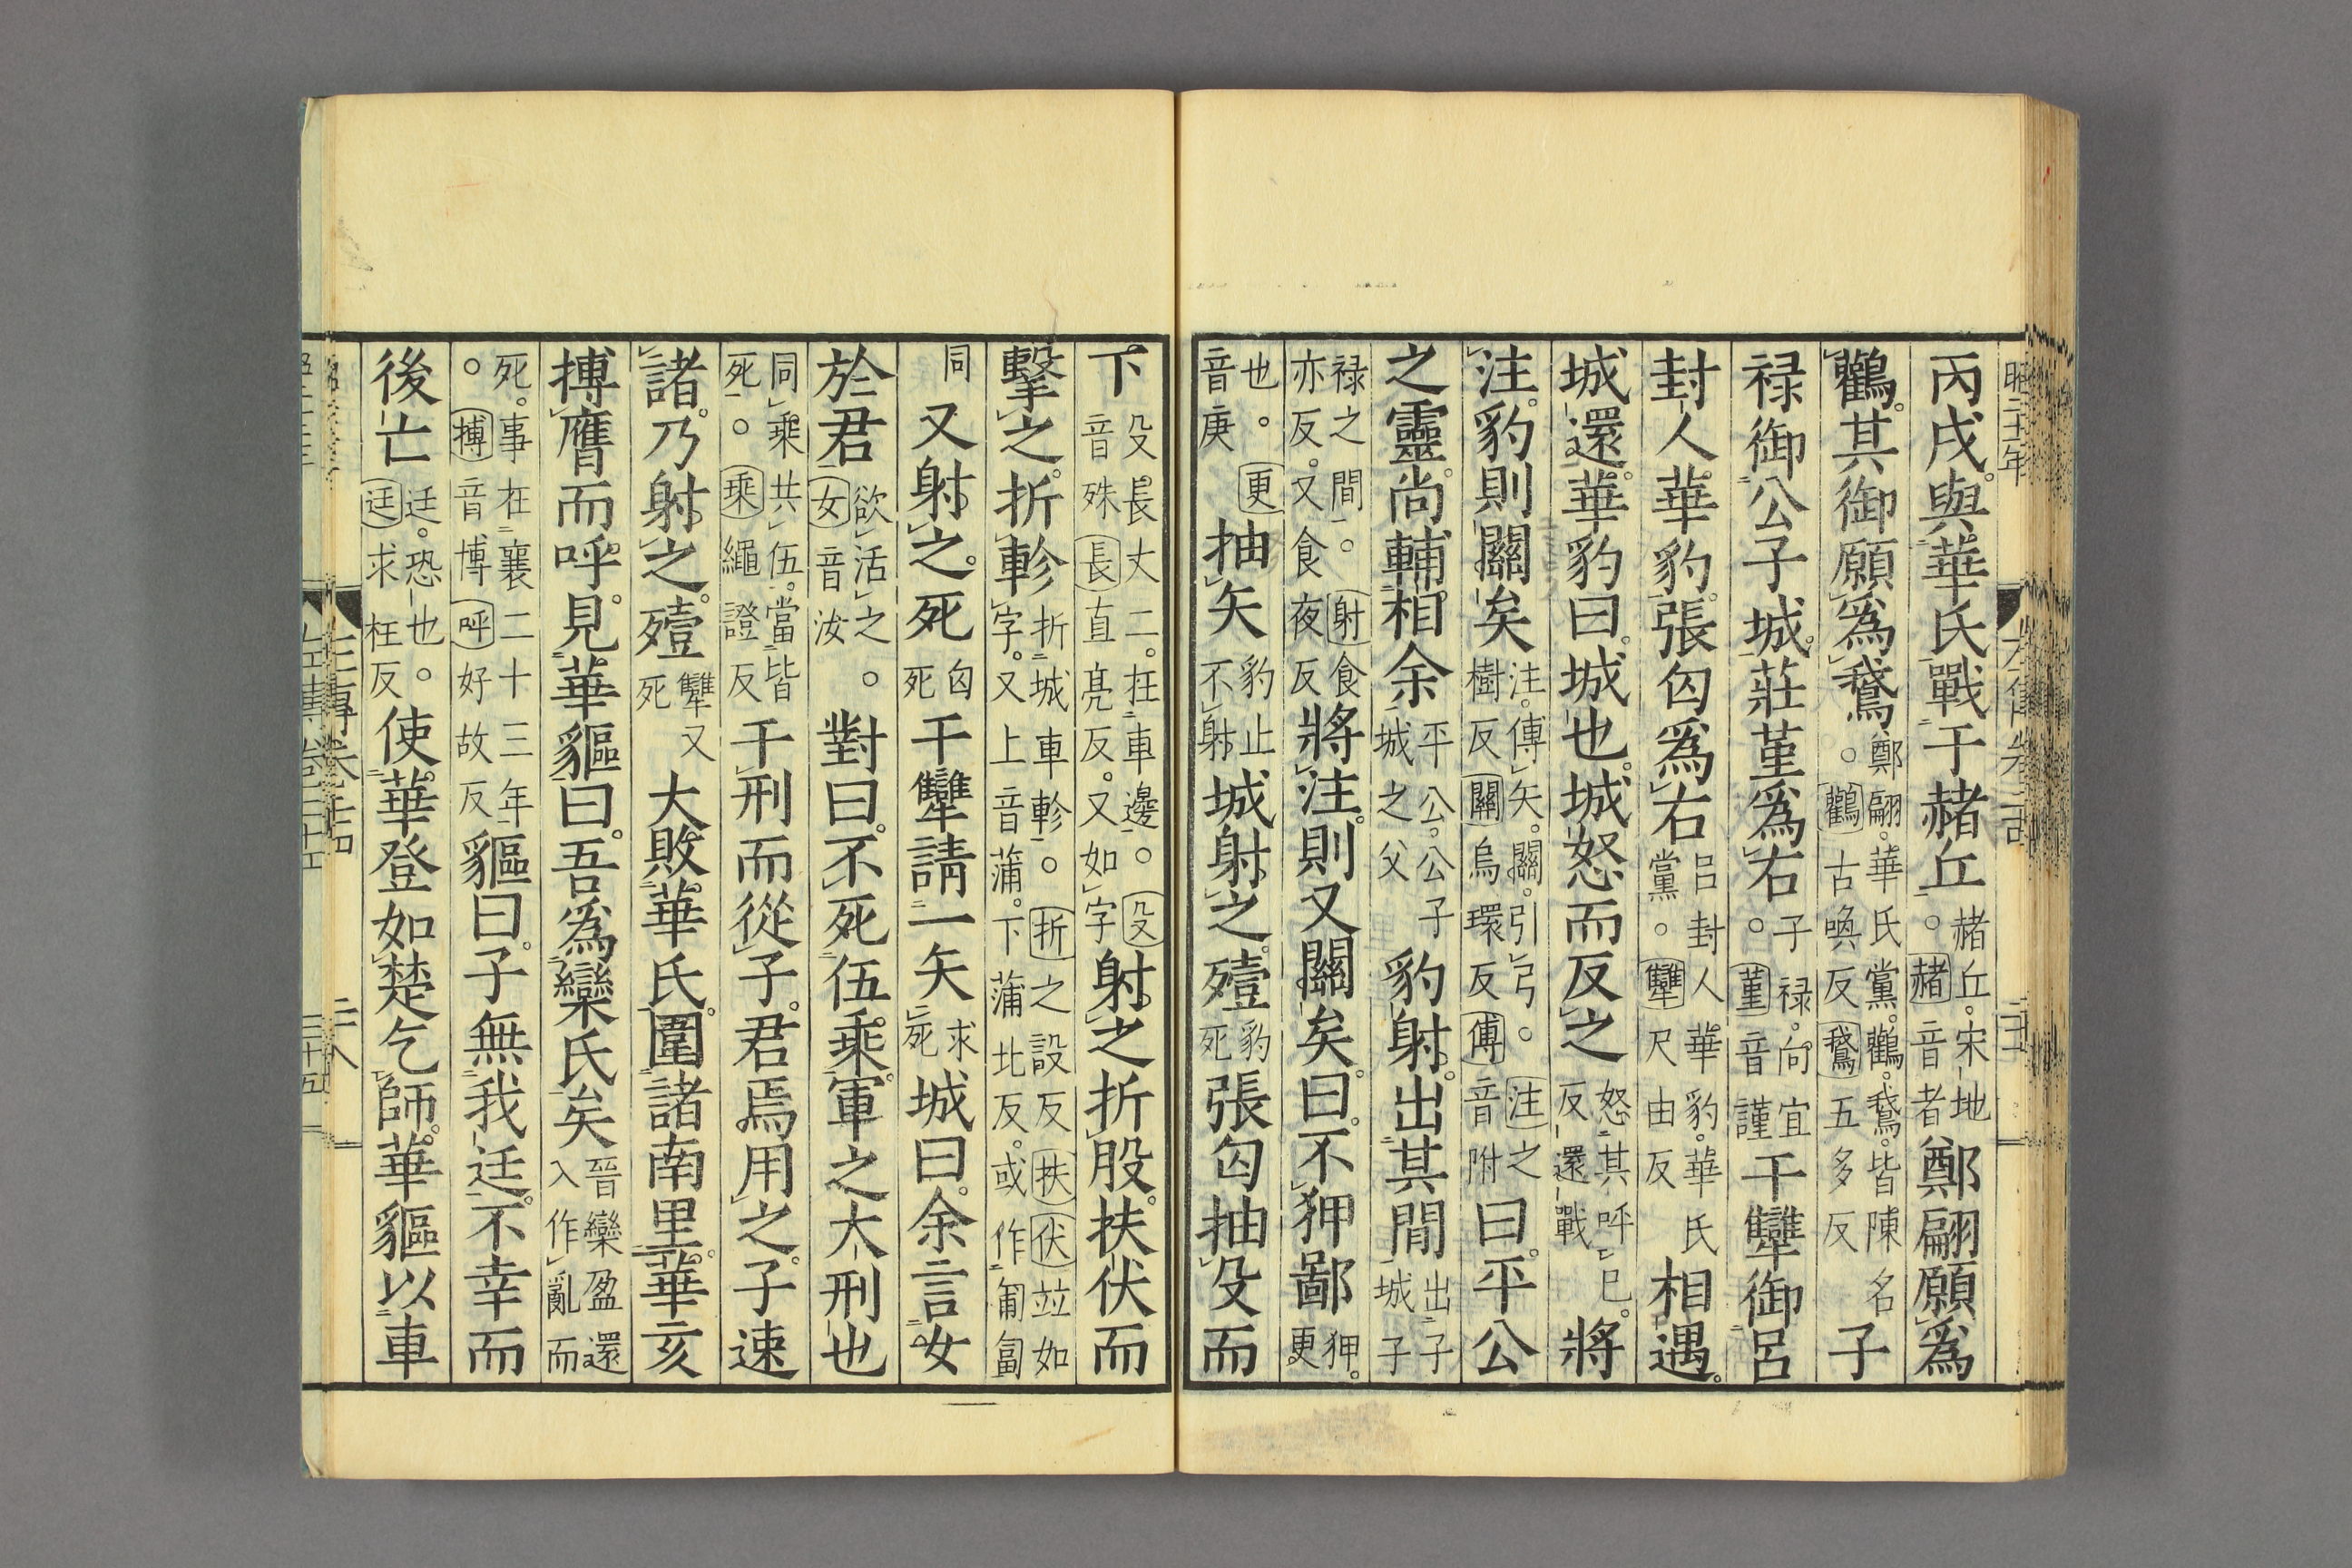 丙戌。與華氏戰于赭丘。赭丘。宋地。赭音者鄭翩願爲
鸛。其御願爲鵝。鄭翩。華氏黨。鸛。鵝。皆陳名。鸛古喚反鵝五多反子
禄御公子城。莊堇爲右。子禄。向宜。堇音謹干犨御呂
封人華豹。張匄爲右呂封人華豹。華氏黨。犨尺由反相遇。
城還。華豹曰。城也。城怒而反之怒其呼己。反還戰將
注。豹則關矣注。傅矢。關。引弓。注之樹反關烏環反傅音附曰。平公
之靈。尚輔相余平公。公子城之父豹射。出其閒出子城子
禄之間。射食亦反。又食夜反將注。則又關矣。曰。不狎鄙狎。更
也。更音庚抽矢豹止不射城射之。殪豹死張匄抽殳而
下。殳長丈二。在車邊。殳音殊長直亮反。又如字射之折股。扶伏而
擊之。折軫折城車軫。折之設反扶伏竝如字。又上音蒲。下蒲北反。或作匍匐
同又射之。死匄死干犨請一矢求死城曰。余言女
於君欲活之。女音汝對曰。不死伍乘。軍之大刑也
同乘共伍。當皆死。乘繩證反干刑而從子。君焉用之。子速
諸。乃射之。殪犨又死大敗華氏。圍諸南里。華亥
搏膺而呼。見華貙曰。吾爲欒氏矣晉欒盈還入作亂而
死。事在襄二十三年。搏音博呼好故反貙曰。子無我迋。不幸而
後亡迋。恐也。迋求枉反使華登如楚乞師。華貙以車